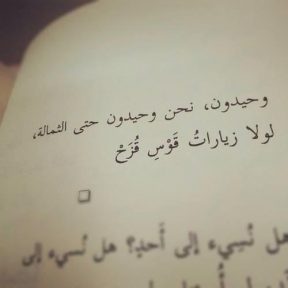 وحيدون، نحن وحيدون حتى الثمالة،
لولا زياراتُ قَوْسِ قُزَحْ
هل نُسِيء إلى أَحدٍ؟ هل نُسيء إلى